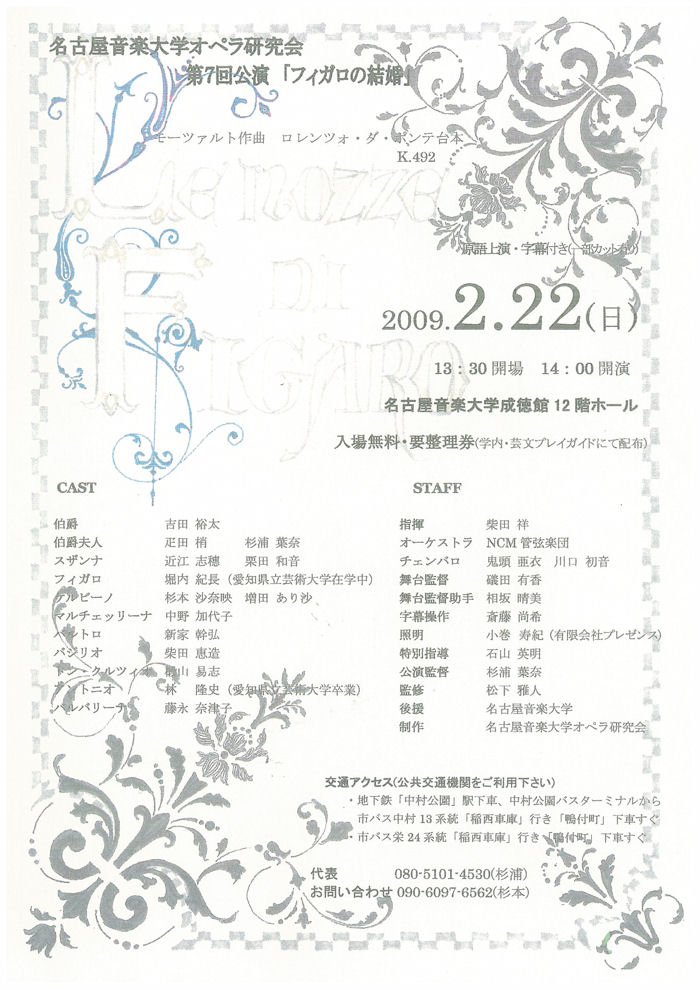 名古屋音楽大学オペラ研究会
第7回公演「フィガロの結婚」
モーツァルト作曲 ロレンツォ・ダ・ポンテ台本
K.492
Le nozze
DI
FIGARO
原語上演・字幕付き(一部カット有り)
2009.2.22(日)
13：30開場 14：00開演
名古屋音楽大学成徳館12階ホール
入場無料・要整理券(学内・芸文プレイガイドにて配布)
CAST
伯爵 吉田 裕太
伯爵夫人 疋田 梢 杉浦 葉奈
スザンナ 近江 志穂 栗田 和音
フィガロ 堀内 紀長（愛知県立芸術大学在学中）
ケルビーノ 杉本 沙奈映 増田 あり沙
マルチェッリーナ 中野 加代子
バルトロ 新家 幹弘
バジリオ 柴田 恵造
ドン・クルツィオ 山 易志
アントニオ 林 隆史（愛知県立芸術大学卒業）
バルバリーナ 藤永 奈津子
STAFF
指揮 柴田 祥
オーケストラ NCM管弦楽団
チェンバロ 鬼頭 亜衣 川口 初音
舞台監督 礒田 有香
舞台監督助手 相坂 晴美
字幕操作 斎藤 尚希
照明 小巻 寿紀（有限会社プレゼンス）
特別指導 石山 英明
公演監督 杉浦 葉奈
監修 松下 雅人
後援 名古屋音楽大学
制作 名古屋音楽大学オペラ研究会
交通アクセス(公共交通機関をご利用下さい)
・地下鉄「中村公園」駅下車、中村公園バスターミナルから
市バス中村13系統「稲西車庫」行き「鴨付町」下車すぐ
・市バス栄24系統「稲西車庫」行き「鴨付町」下車すぐ
代表 080-5101-4530(杉浦)
お問い合わせ 090-6097-6562(杉本)